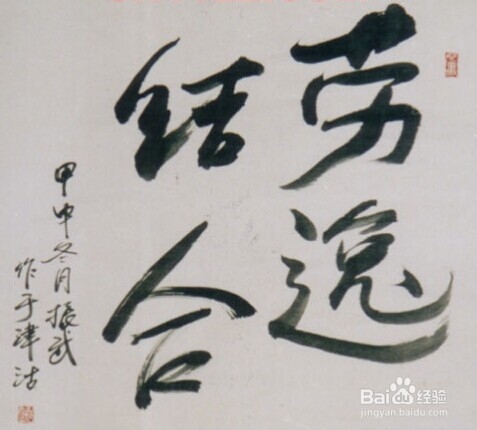 劳逸
结合
甲申冬月振武
作于津沽
Baidu经验
jingyan.baidu.com